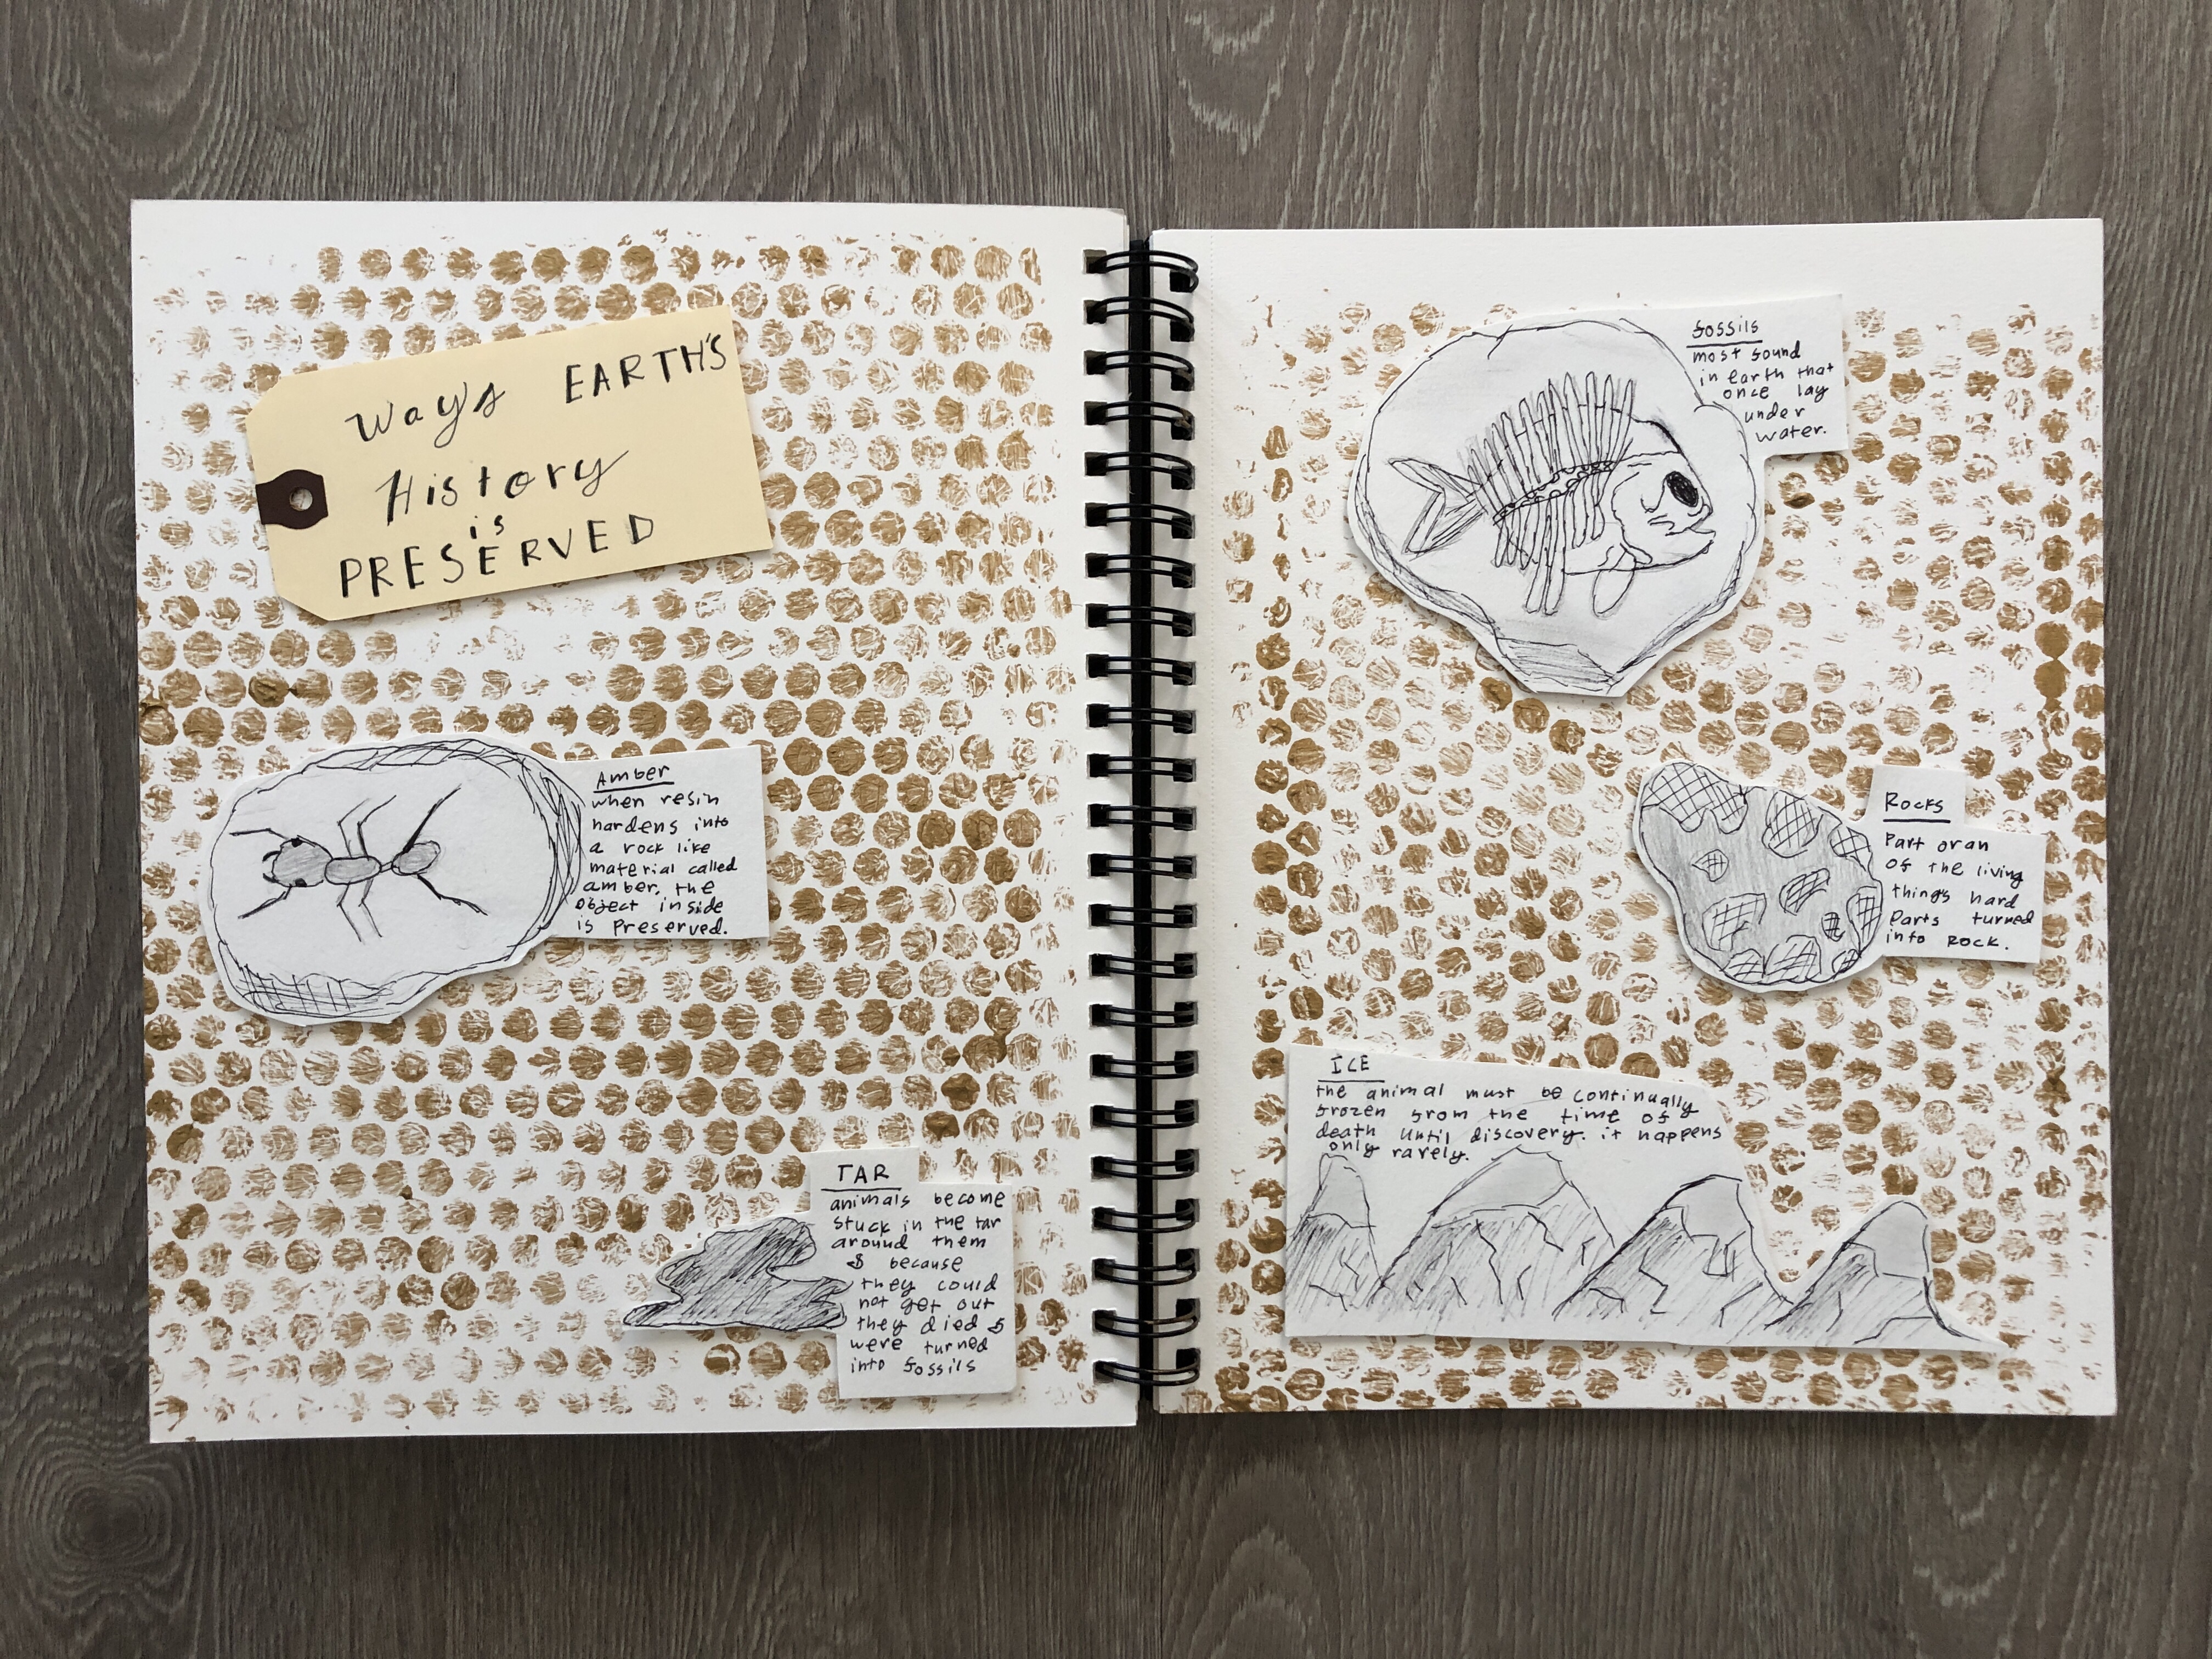 Ways EARTH'S
History
is
PRESERVED
Amber
when resin
hardens into
a rock like
material called
amber, the
object inside
is preserved.
TAR
animals become
stuck in the tar
around them
& because
they could
not get out
they died &
were turned
into fossils
fossils
most found
in earth that
once lay
under
water.
Rocks
Part or an
of the living
things hard
parts turned
into ROCK.
ICE
the animal must be continually
frozen from the time of
death until discovery. it happens
only rarely.